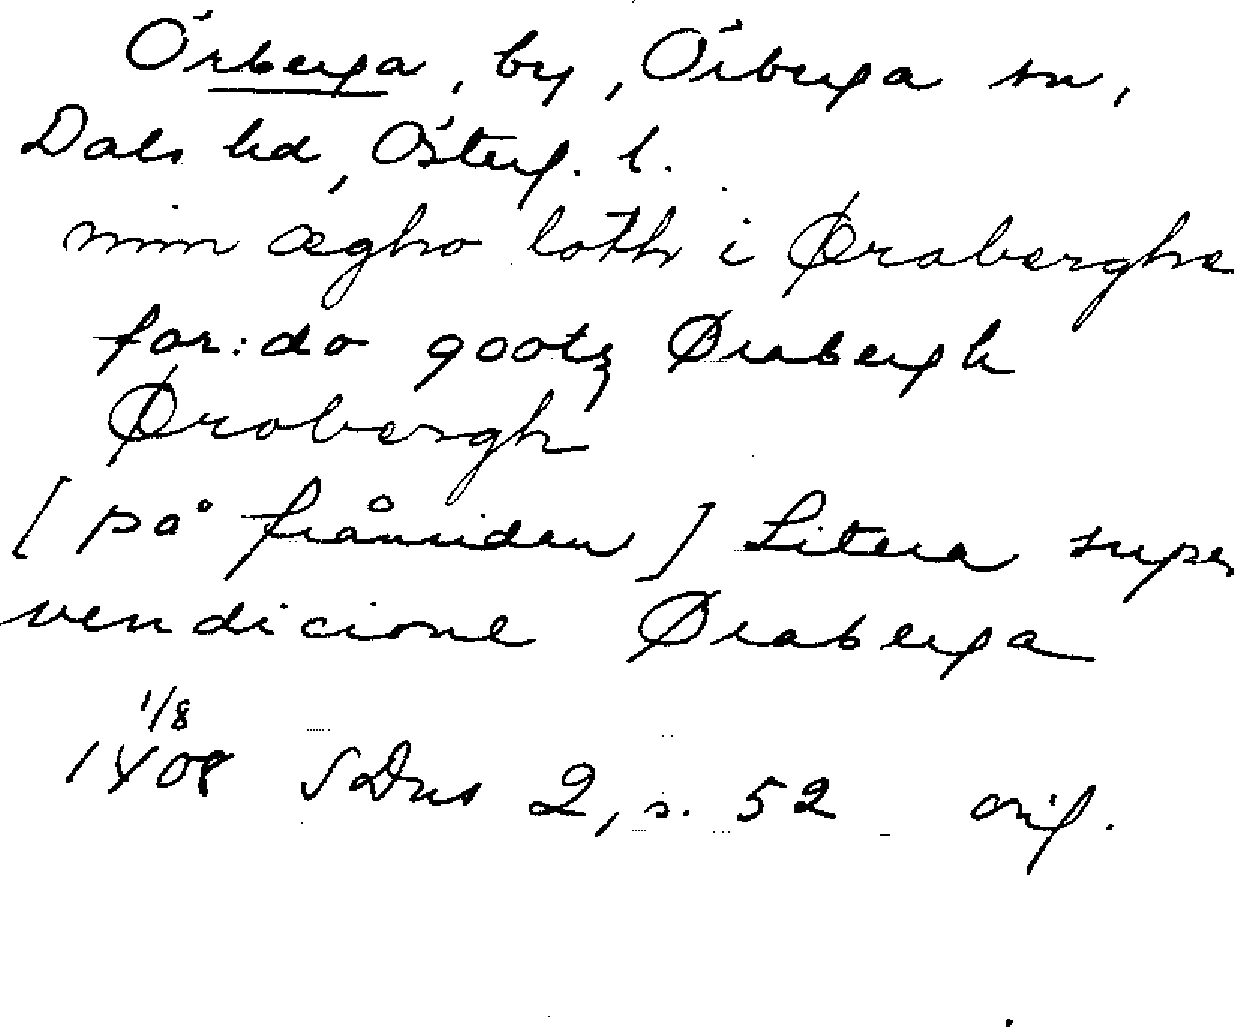 Örberga, by, Örberga sn,
Dals hd, Österg. l.
min ægho loth i Øraberghe
for:do gootz Ørabergh
Ørabergh
[på frånsidan] Litera super
vendicione Øraberga
1/8
1408 SDns 2, s. 52 orig.